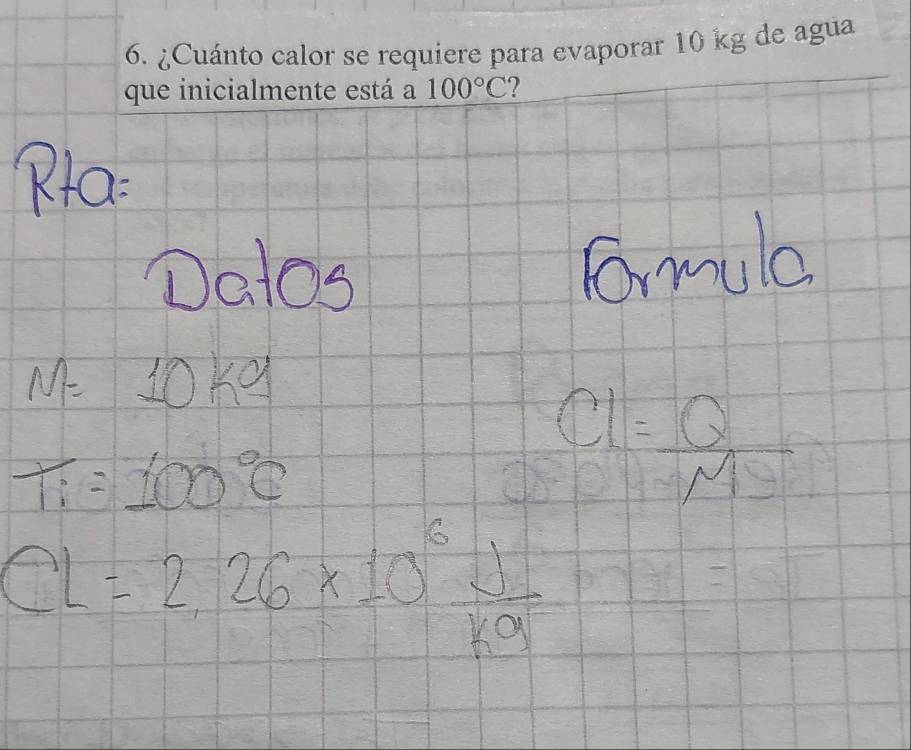 6. ¿Cuánto calor se requiere para evaporar 10 kg de agua
que inicialmente está a 100°C?
Rta:
Datos
Formula
M= 10 kg
Cl = Q
M
Ti = 100°C
CL = 2,26 × 10⁶ J
kg